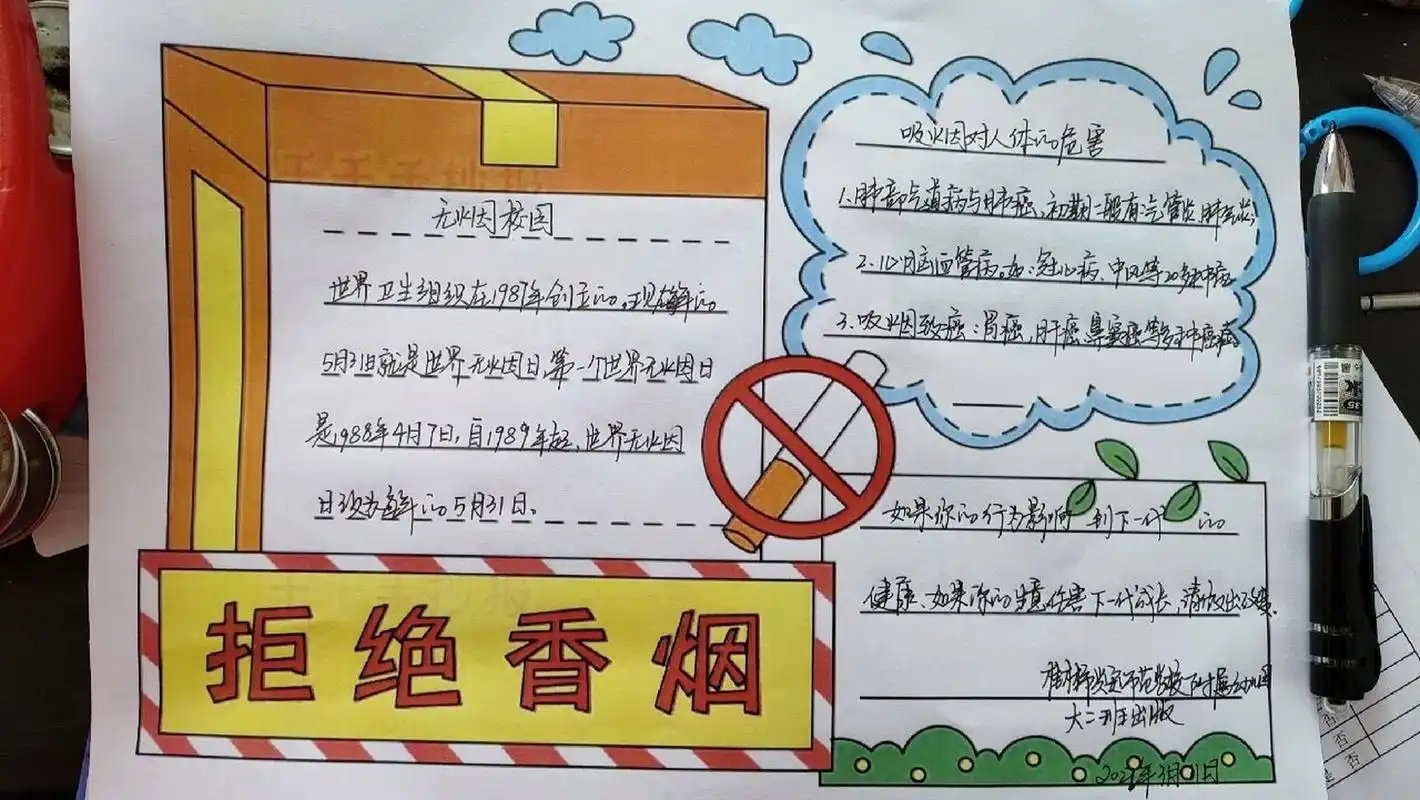 无烟校园
世界卫生组织在1987年创立的。现在每年的
5月31日就是世界无烟日,第一个世界无烟日
是1988年4月7日,自1989年起,世界无烟
日改为每年的5月31日。
拒绝香烟
吸烟对人体的危害
1.肺部气道病与肺癌、初期一般有气管炎、肺气肿;
2.心脑血管病。如:冠心病、中风等20多种症
3.吸烟致癌:胃癌,肝癌,鼻窦癌等多种癌症
如果你的行为影响到下一代的
健康、如果你的生意伤害下一代成长,请做出改变.
附属幼儿园
大二班出版
月31日